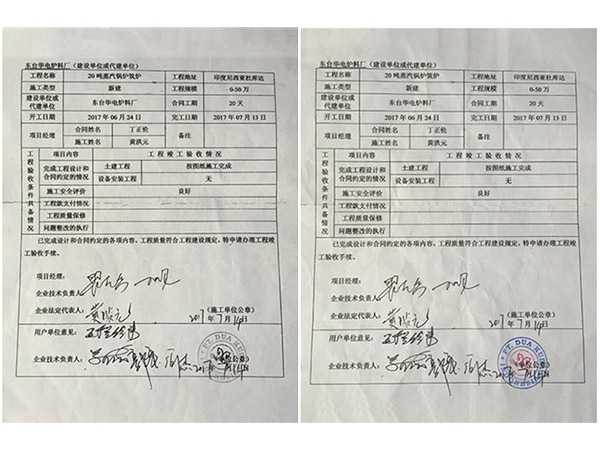 东台华电炉料厂（建设单位或代建单位）
工程名称 20 吨蒸汽锅炉筑炉 工程地址 印度尼西亚杜库达
施工类型 新建 工程规模 0-50 万
建设单位或代建单位 东台华电炉料厂 合同工期 20 天
开工日期 2017 年 06 月 24 日 完工日期 2017 年 07 月 13 日
项目经理 合同姓名 丁正伦 备注
施工姓名 黄洪元
工程验收条件具备情况
项目内容 工程竣工验收情况
完成工程设计和合同约定的情况 土建工程 按图纸施工完成
设备安装工程 无
施工安全评价 良好
工程款支付情况
工程质量保修
问题整改的执行
已完成设计和合同约定的各项内容，工程质量符合工程建设规定，特申请办理工程竣工验收手续。
项目经理：
企业技术负责人：
企业法定代表人： （施工单位公章）
2017 年 7 月 14 日
用户单位意见：
企业技术负责人： 单位公章）
东台华电炉料厂（建设单位或代建单位）
工程名称 20 吨蒸汽锅炉筑炉 工程地址 印度尼西亚杜库达
施工类型 新建 工程规模 0-50 万
建设单位或代建单位 东台华电炉料厂 合同工期 20 天
开工日期 2017 年 06 月 24 日 完工日期 2017 年 07 月 13 日
项目经理 合同姓名 丁正伦 备注
施工姓名 黄洪元
工程验收条件具备情况
项目内容 工程竣工验收情况
完成工程设计和合同约定的情况 土建工程 按图纸施工完成
设备安装工程 无
施工安全评价 良好
工程款支付情况
工程质量保修
问题整改的执行
已完成设计和合同约定的各项内容，工程质量符合工程建设规定，特申请办理工程竣工验收手续。
项目经理：
企业技术负责人：
企业法定代表人： （施工单位公章）
2017 年 7 月 14 日
用户单位意见：
企业技术负责人： 单位公章）
PT. DUA KUDA